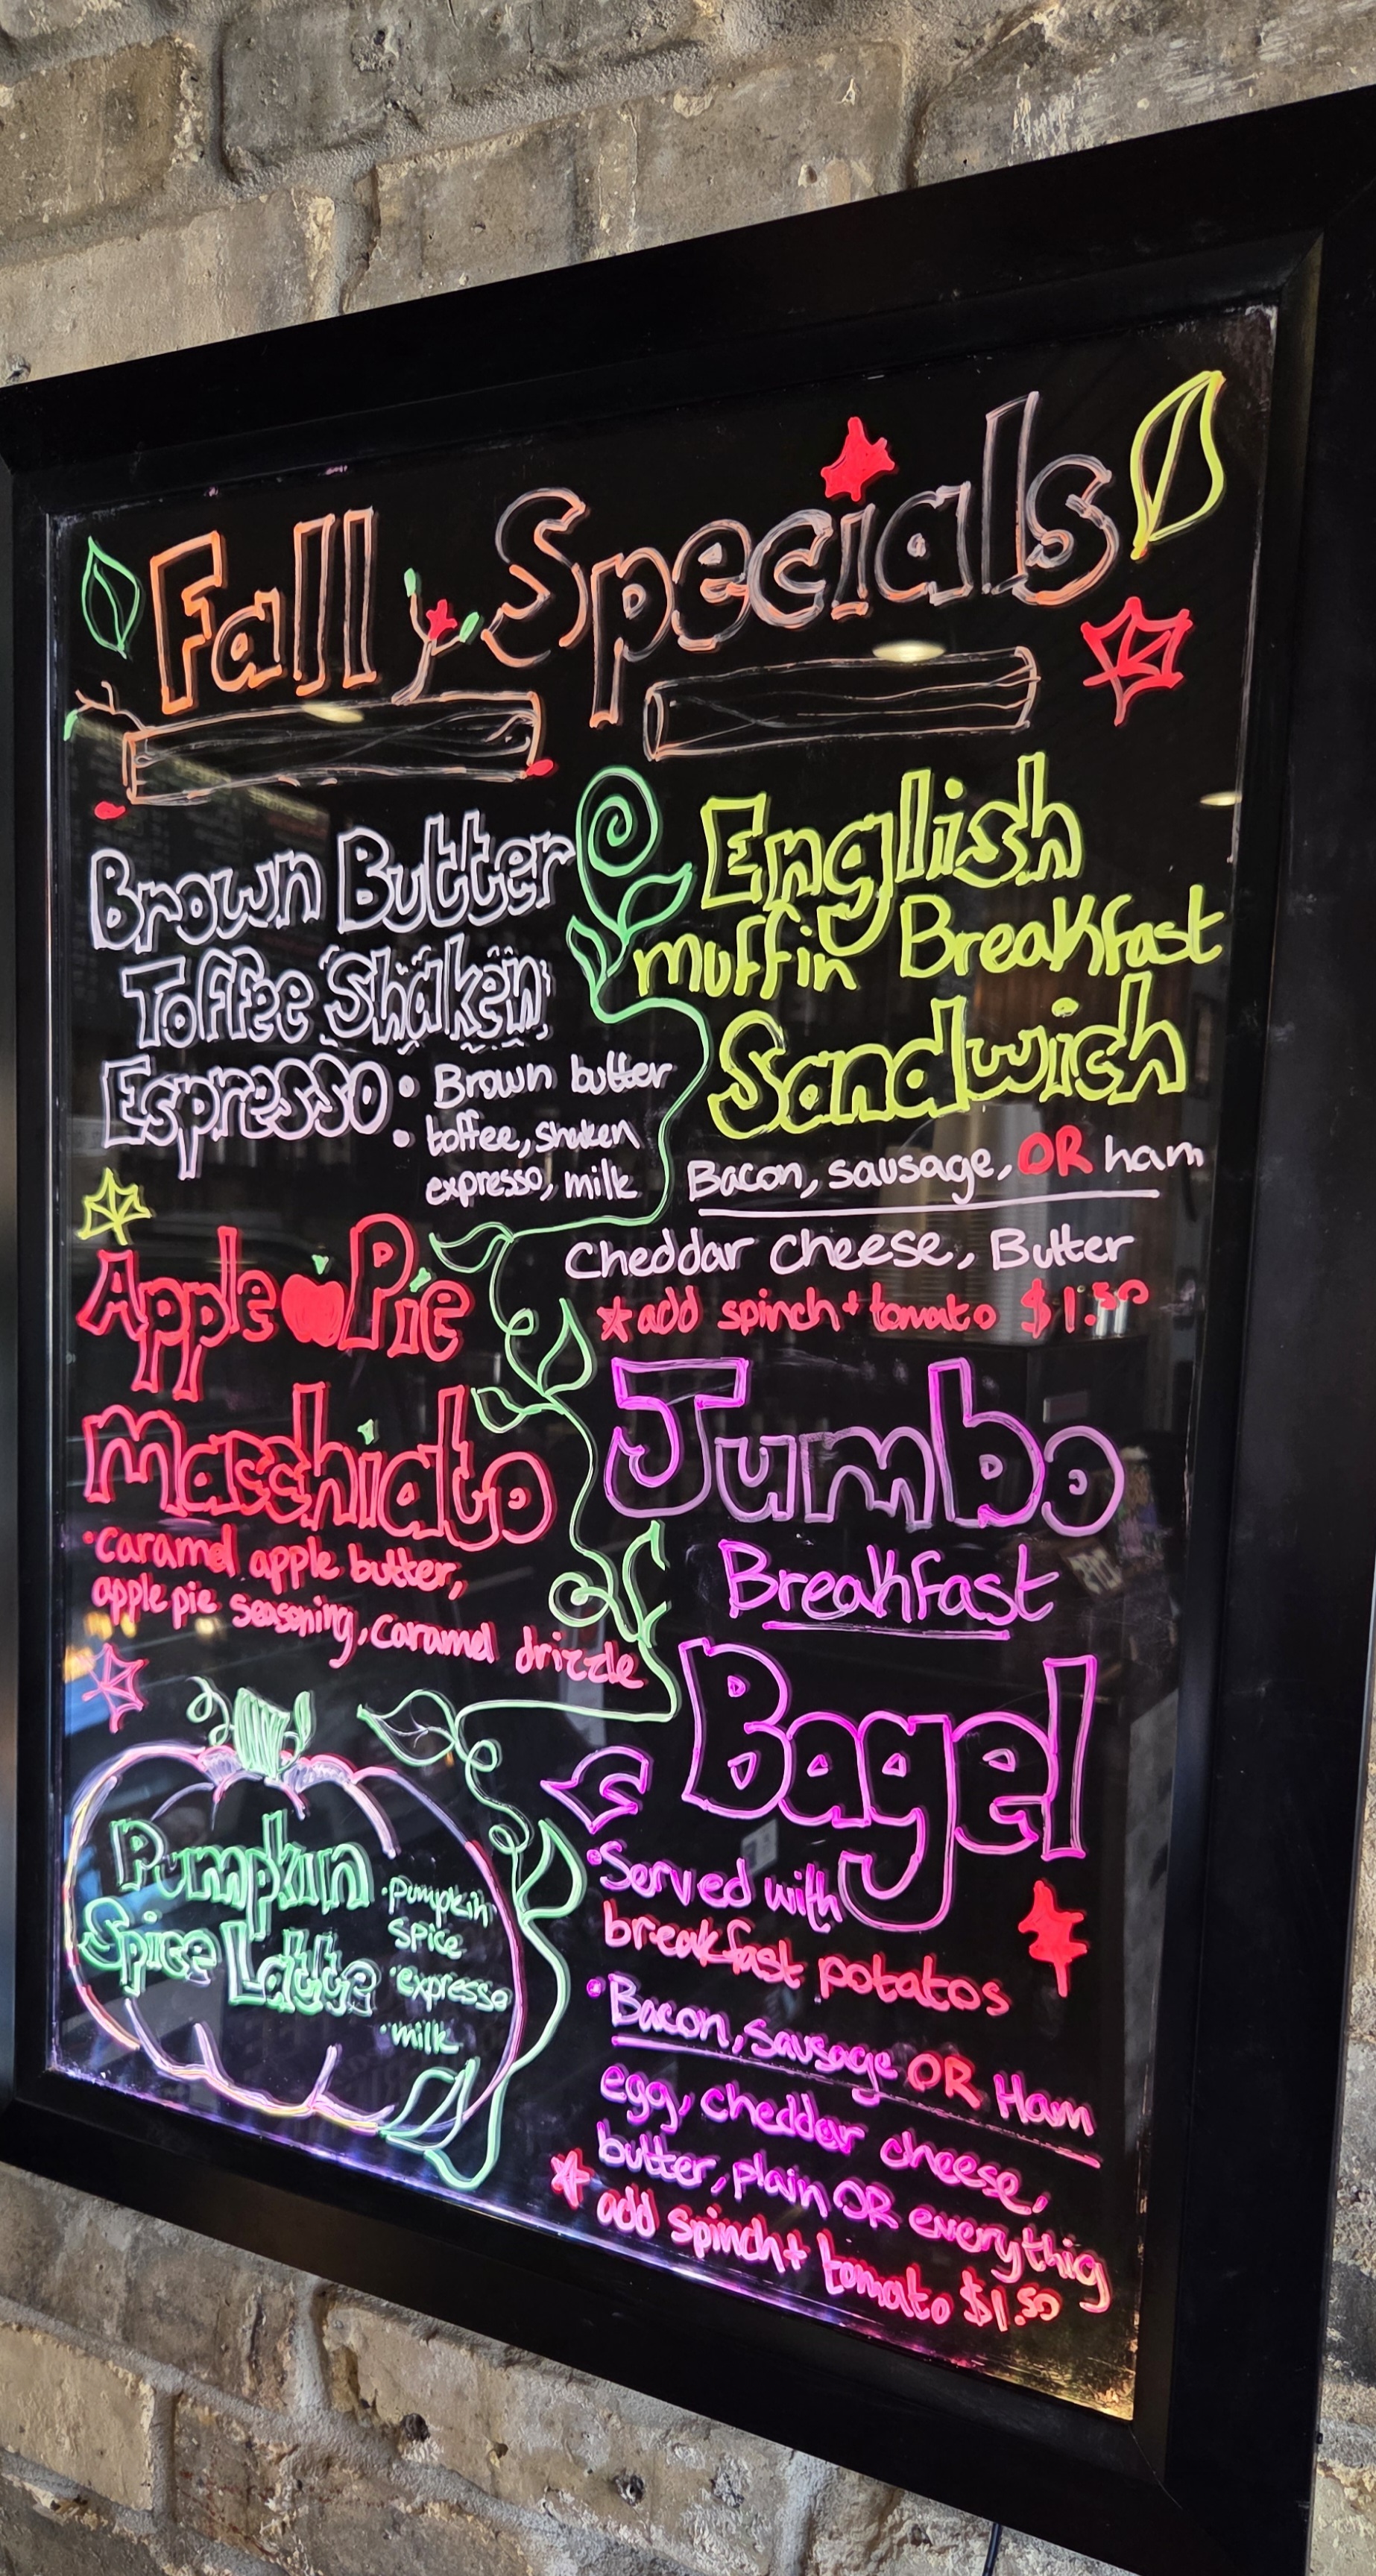 Fall Specials
Brown Butter
Toffee Shaken
Espresso
• Brown butter
• toffee, shaken
expresso, milk
Apple Pie
Macchiato
• caramel apple butter,
apple pie seasoning, caramel drizzle
Pumpkin
Spice Latte
• pumpkin
spice
• expresso
• milk
English
muffin Breakfast
Sandwich
Bacon, sausage, OR ham
Cheddar cheese, Butter
* add spinch + tomato $1.50
Jumbo
Breakfast
Bagel
• Served with
breakfast potatos
• Bacon, sausage OR Ham
egg, cheddar cheese,
butter, plain OR everythig
* add spinch + tomato $1.50